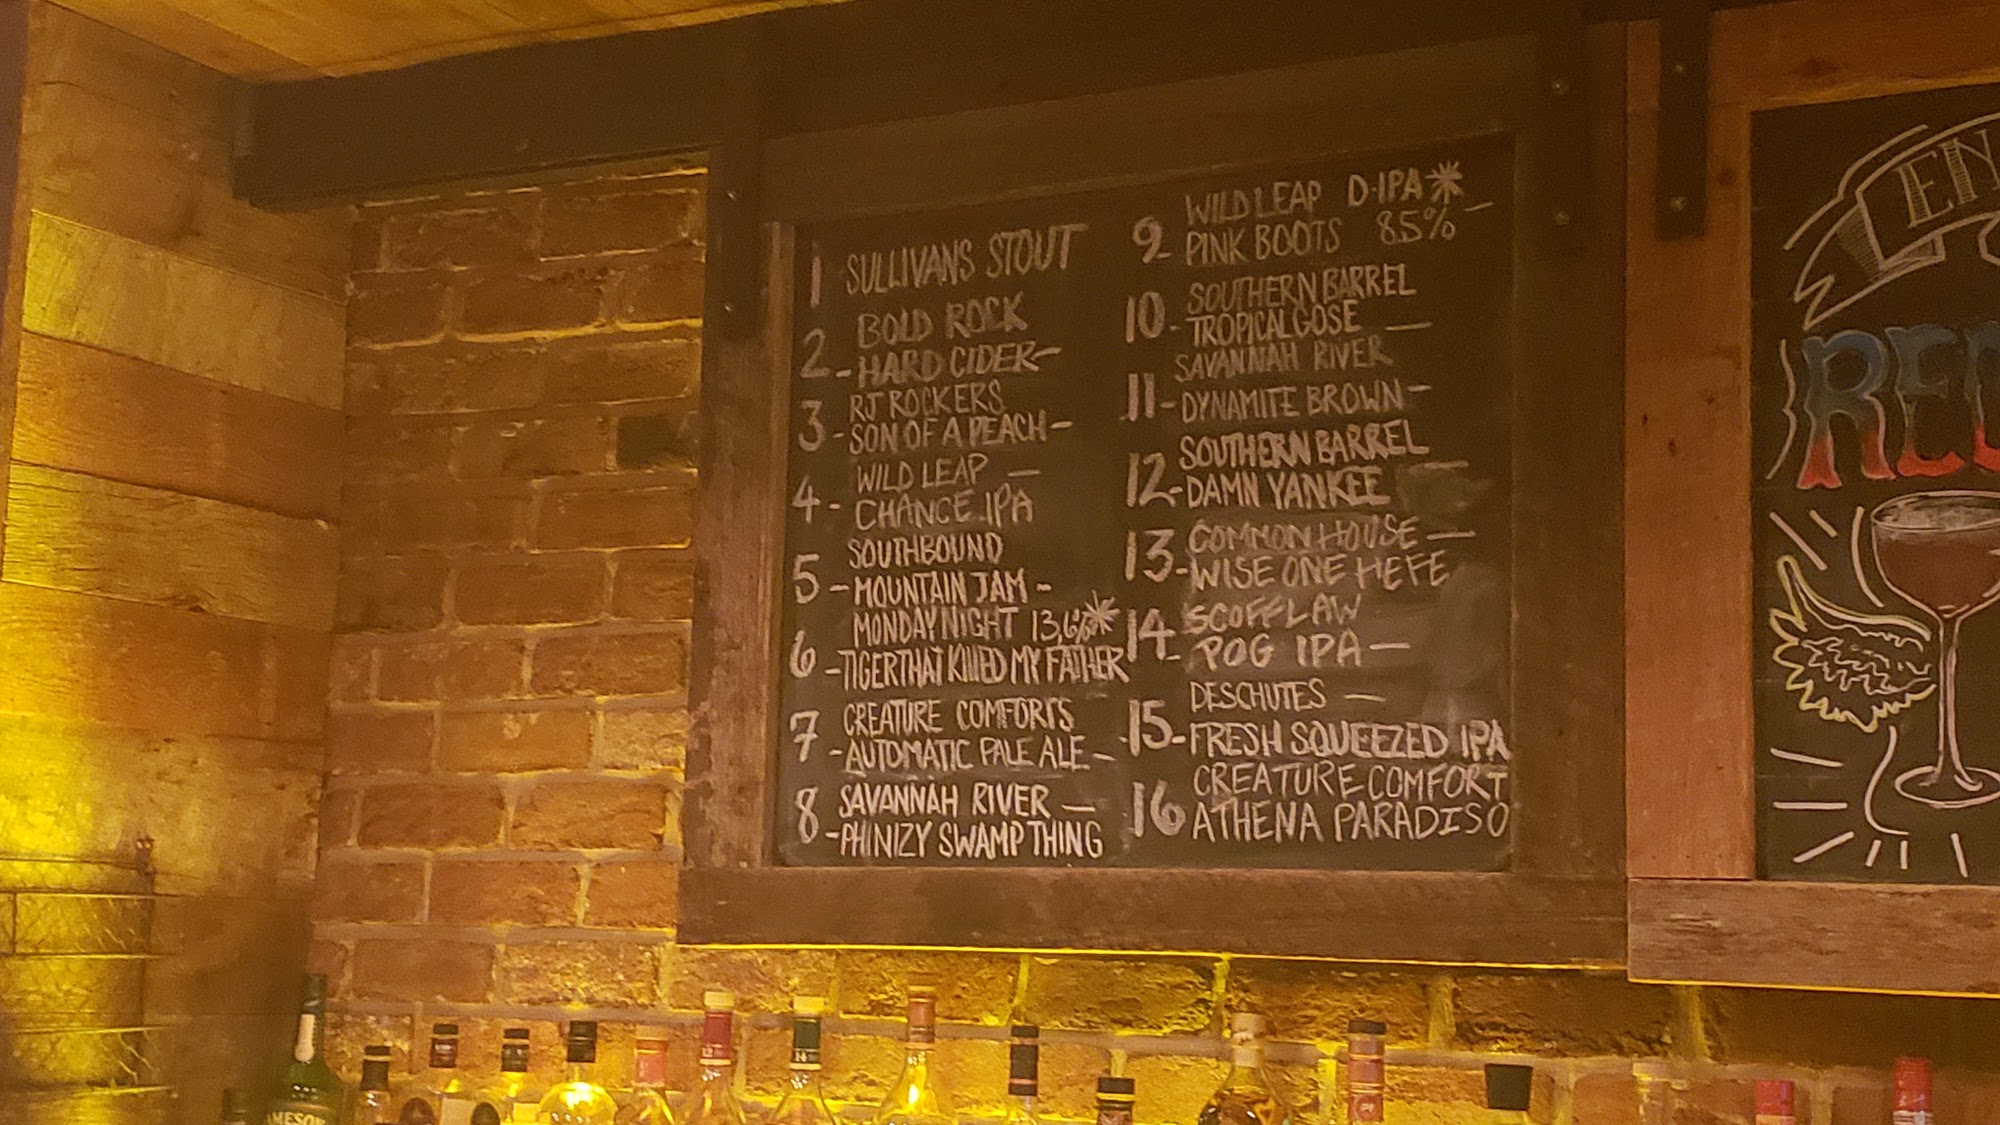 1 SULLIVANS STOUT
BOLD ROCK
2 - HARD CIDER -
RJ ROCKERS
3 - SON OF A PEACH -
WILD LEAP -
4 - CHANCE IPA
SOUTHBOUND
5 - MOUNTAIN JAM -
MONDAY NIGHT 13,6%
6 - TIGER THAT KILLED MY FATHER
CREATURE COMFORTS
7 - AUTOMATIC PALE ALE -
SAVANNAH RIVER -
8 - PHINIZY SWAMP THING
WILD LEAP D-IPA
9 PINK BOOTS 8.5% -
SOUTHERN BARREL
10 - TROPICAL GOSE -
SAVANNAH RIVER
11 - DYNAMITE BROWN -
SOUTHERN BARREL
12 - DAMN YANKEE
COMMON HOUSE -
13 - WISE ONE HEFE
SCOFFLAW
14 - POG IPA -
DESCHUTES -
15 - FRESH SQUEEZED IPA
CREATURE COMFORT
16 ATHENA PARADISO
EN
RED
JAMESON